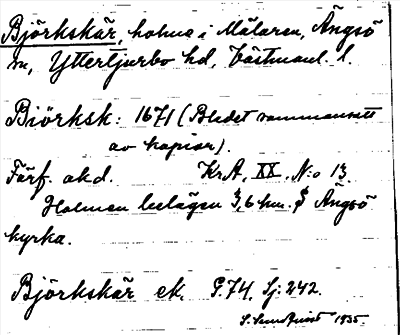 Björkskär, holme i Mälaren, Ängsö
sn, Yttertjurbo hd, Västmanl. l.
Biörksk: 1671 (Bladet sammansatt
av kopior).
Förf. okd. Kr.A, XX, N:o 13.
Holmen belägen 3,6 km. S Ängsö
kyrka.
Björkskär ek. G.74, Sj: 242.
S. Sundquist 1935.